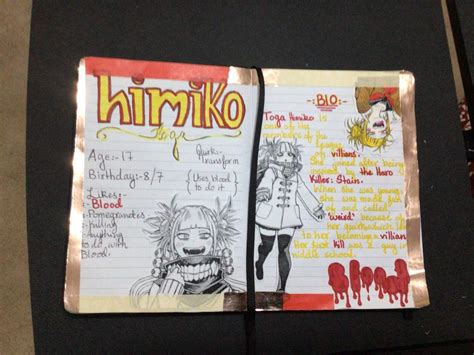 himiko
Toga
Age:- 17
Birthday:- 8/7
Quirk:-
Transform
{Uses blood
to do it.}
Likes:-
- Blood
- Pomegranates
- Killing
- Anything
to do with
Blood.
-:BIO:-
Toga Himiko is
one of the
members of the
League
of villians.
She joined after being
inspired by the Hero
Killer: Stain.
When she was young,
she was made fun
of and called
"weird" because of
her quirk which led
to her becoming a villian
Her first kill was a guy in
middle school.